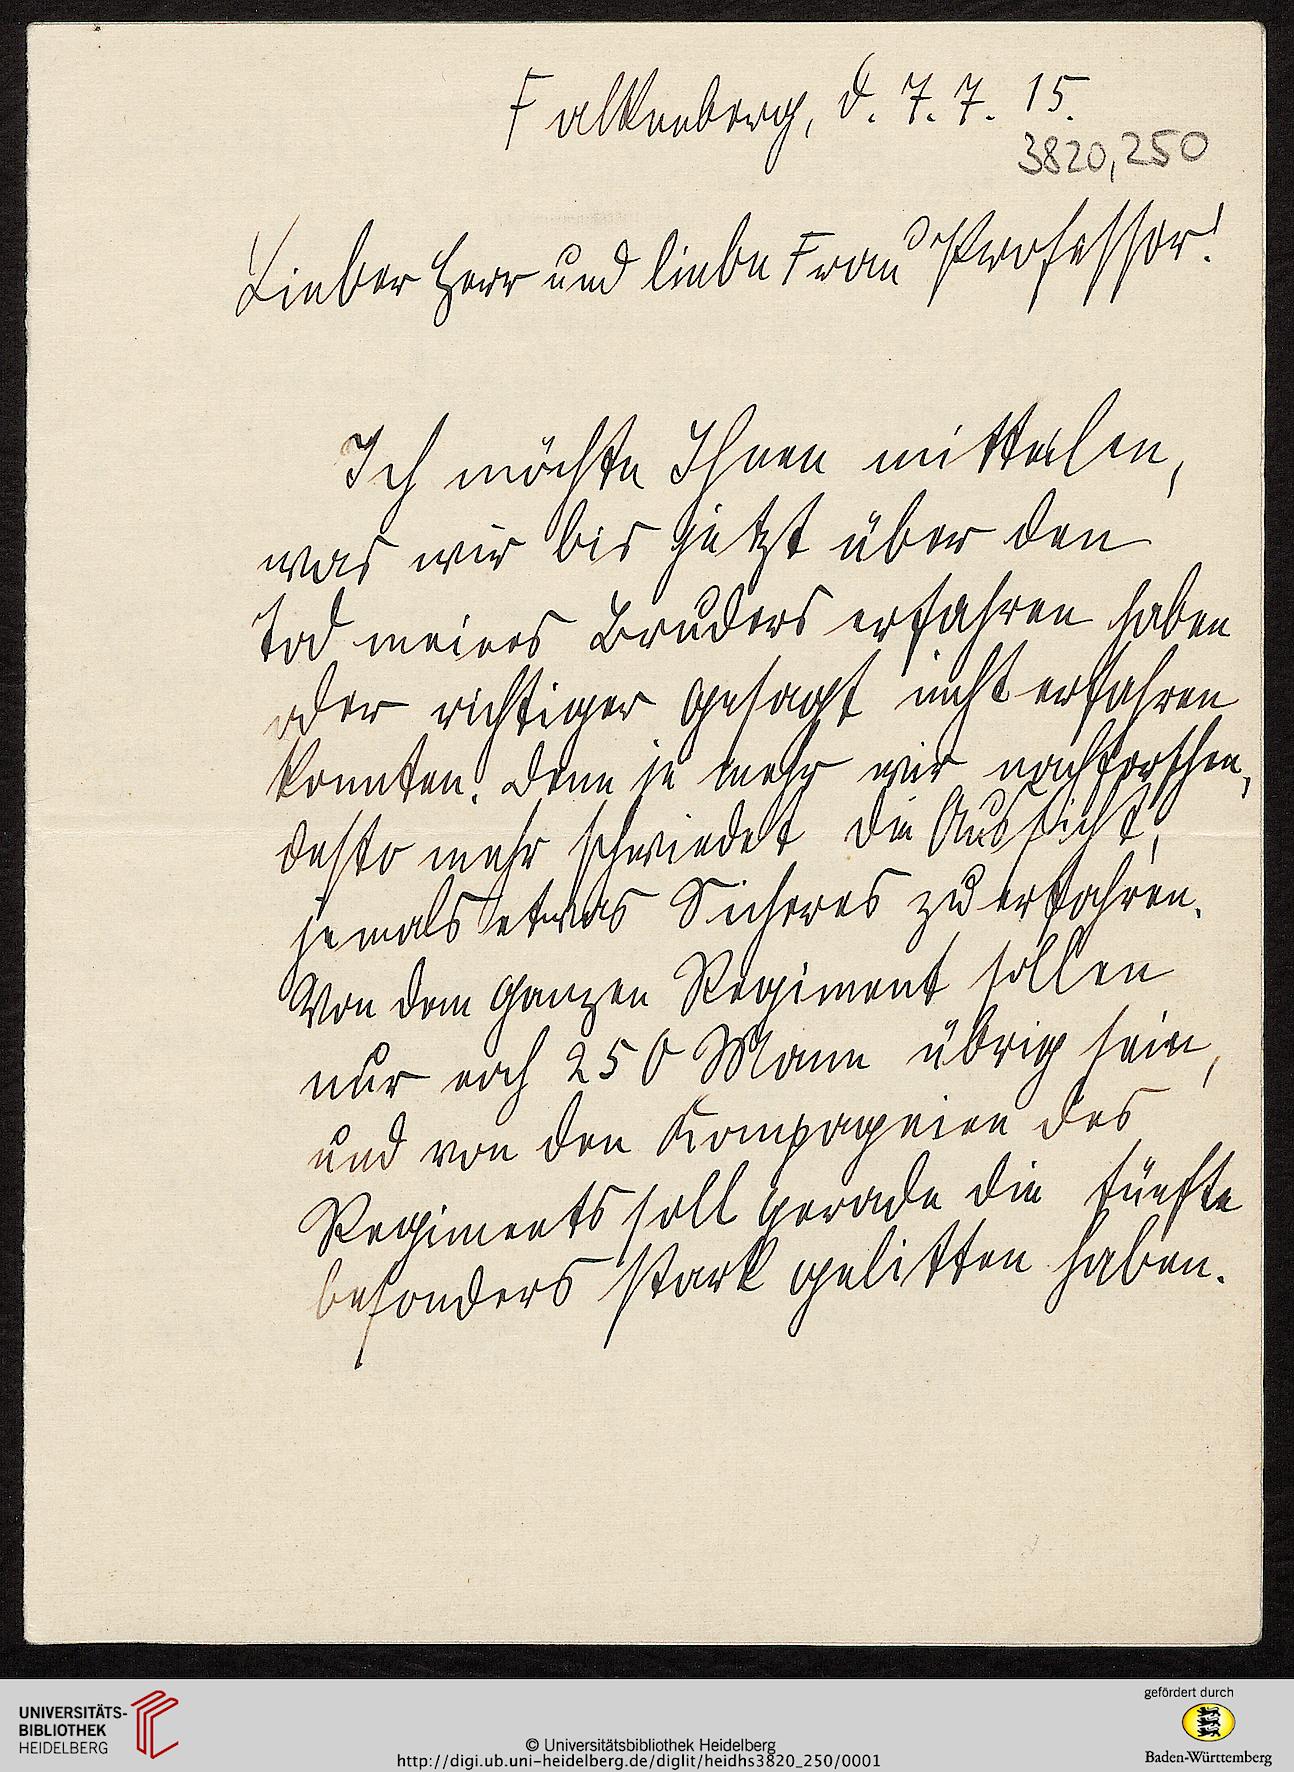 Falkenberg, d. 7. 7. 15.
3820,250
Lieber Herr und liebe Frau Professor!
Ich möchte Ihnen mitteilen,
was wir bis jetzt über den
Tod meines Bruders erfahren haben
oder richtiger gesagt nicht erfahren
konnten. Denn je mehr wir nachforschen,
desto mehr schwindet die Aussicht,
jemals etwas Sicheres zu erfahren.
Von dem ganzen Regiment sollen
nur noch 250 Mann übrig sein,
und von den Kompagnien des
Regiments soll gerade die fünfte
besonders stark gelitten haben.
UNIVERSITÄTS-
BIBLIOTHEK
HEIDELBERG
© Universitätsbibliothek Heidelberg
http://digi.ub.uni-heidelberg.de/diglit/heidhs3820_250/0001
gefördert durch
Baden-Württemberg